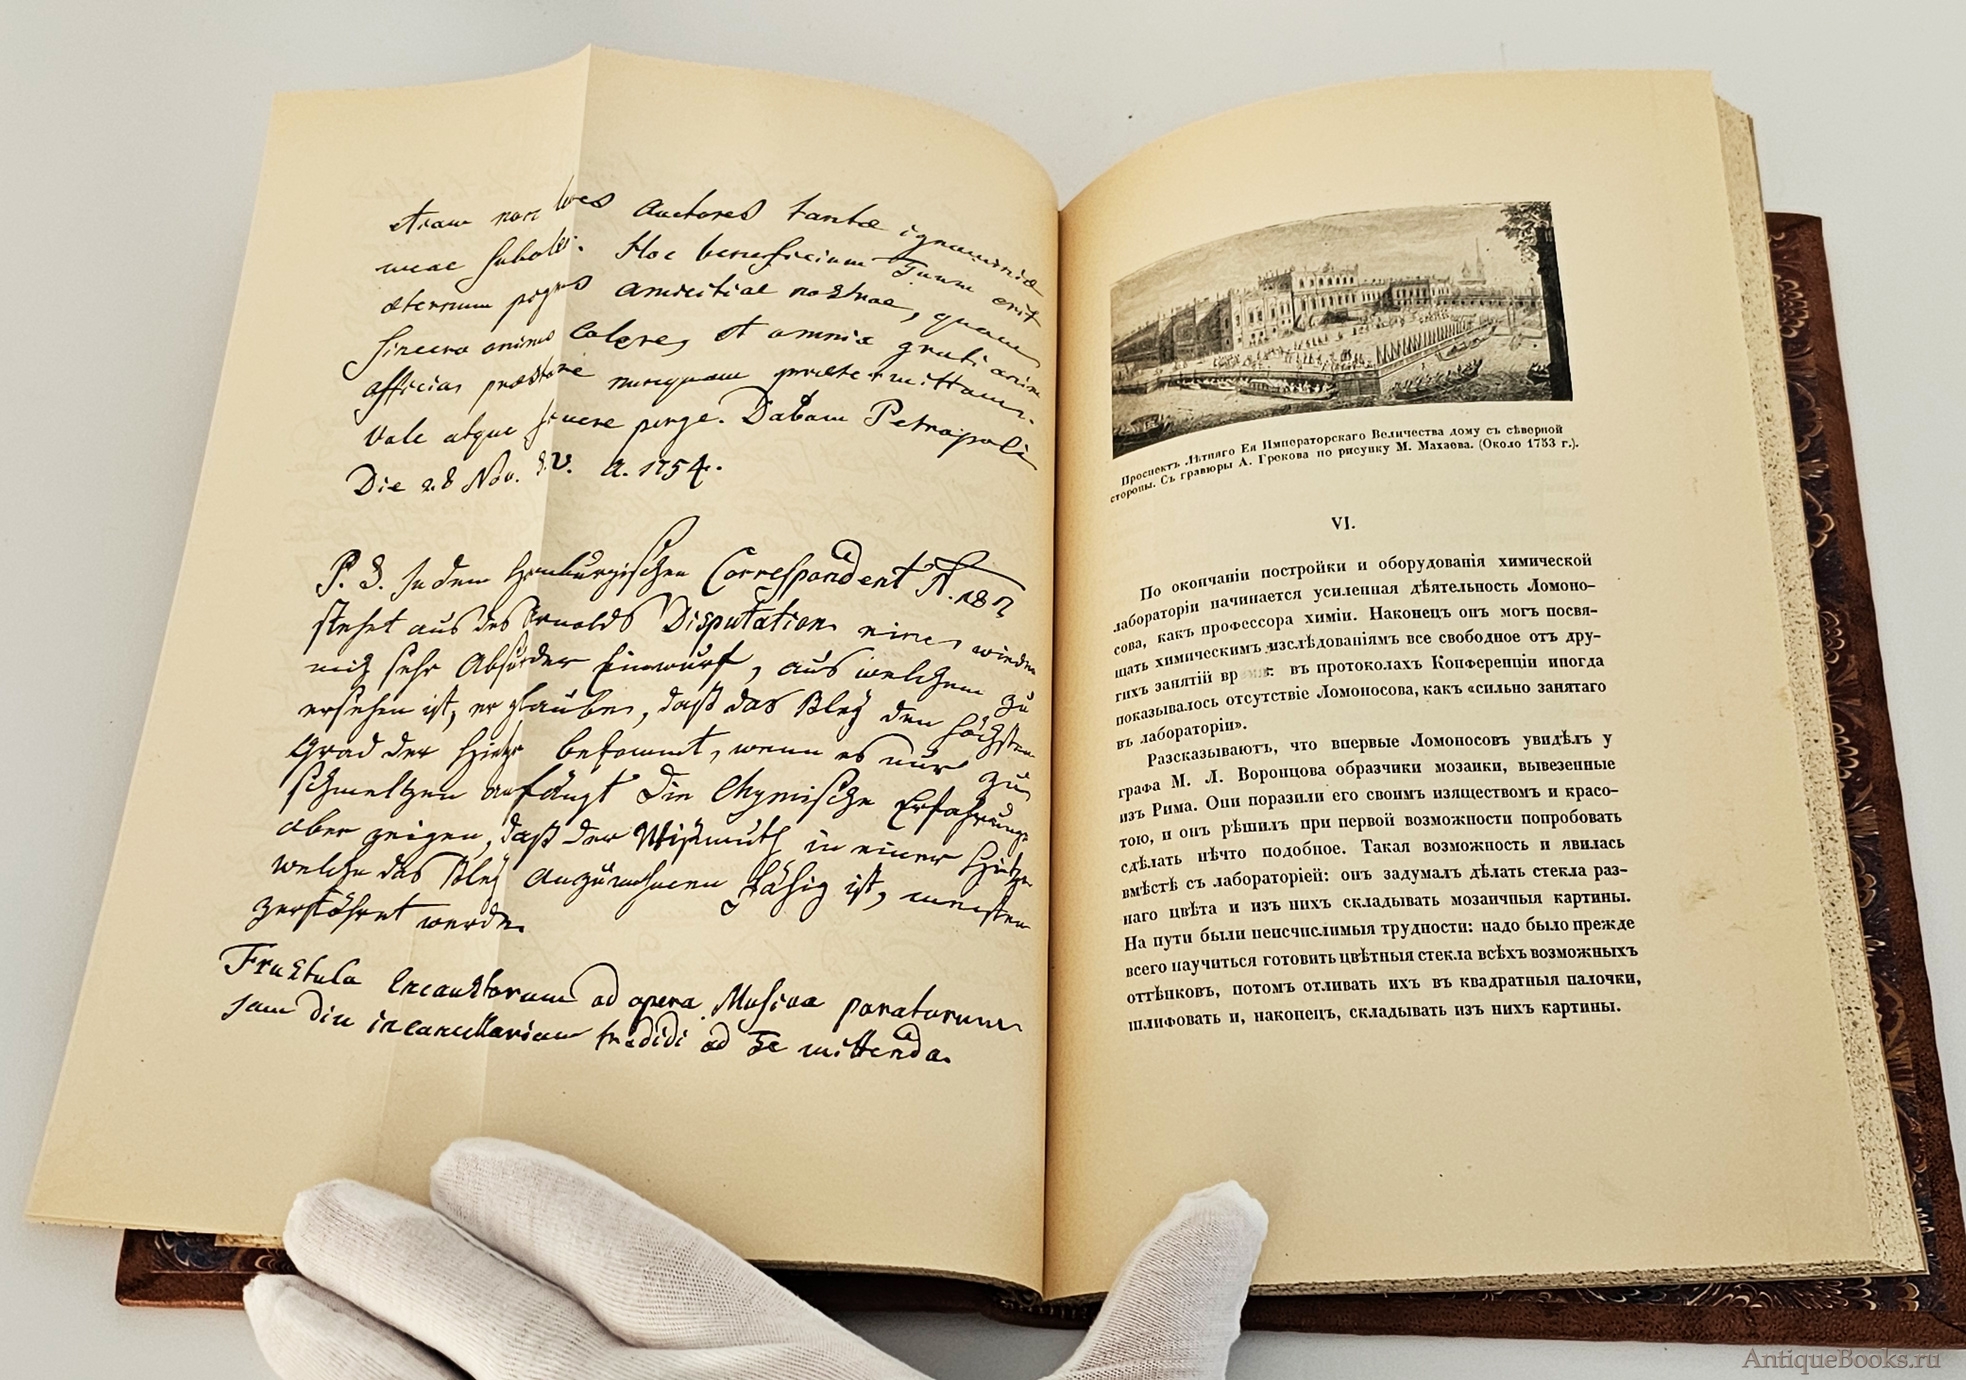 etiam non leves auctores tantae ignominiae
meae suboles. Hoc beneficium Tuum erit
aeternum pignus amicitiae nostrae, quam
sincero animo colere, et omnia grati animi
officia praestare nunquam praetermittam.
Vale atque favere perge. Dabam Petropoli
Die 28 Nov. S.V. A. 1754.
P. S. In dem Hamburgischen Correspondent N.
stehet aus des Arnolds Disputation eine wieder
mich sehr Absurder Einwurf, aus welchem zu
ersehen ist, er glaube, daß das Bley den höchsten
Grad der Hitze bekommt, wenn es nur zu
schmeltzen anfängt Die Chymische Erfahrung
aber zeigen, daß der Wißmuth in einer Hitze
welche das Bley anzunehmen fähig ist,
zerstöhret werde.
Frustula encaustorum ad opera Musiva paratorum
jam diu in cancellariam tradidi ad Te mittenda.
Проспектъ Лѣтняго Ея Императорскаго Величества дому съ сѣверной
стороны. Съ гравюры А. Грекова по рисунку М. Махаева. (Около 1753 г.).
VI.
По окончаніи постройки и оборудованія химической
лабораторіи начинается усиленная дѣятельность Ломоно-
сова, какъ профессора химіи. Наконецъ онъ могъ посвя-
щать химическимъ изслѣдованіямъ все свободное отъ дру-
гихъ занятій время: въ протоколахъ Конференціи иногда
показывалось отсутствіе Ломоносова, какъ «сильно занятаго
въ лабораторіи».
Разсказываютъ, что впервые Ломоносовъ увидѣлъ у
графа М. Л. Воронцова образчики мозаики, вывезенные
изъ Рима. Они поразили его своимъ изяществомъ и красо-
тою, и онъ рѣшилъ при первой возможности попробовать
сдѣлать нѣчто подобное. Такая возможность и явилась
вмѣстѣ съ лабораторіей: онъ задумалъ дѣлать стекла раз-
наго цвѣта и изъ нихъ складывать мозаичныя картины.
На пути были неисчислимыя трудности: надо было прежде
всего научиться готовить цвѣтныя стекла всѣхъ возможныхъ
оттѣнковъ, потомъ отливать ихъ въ квадратныя палочки,
шлифовать и, наконецъ, складывать изъ нихъ картины.
AntiqueBooks.ru